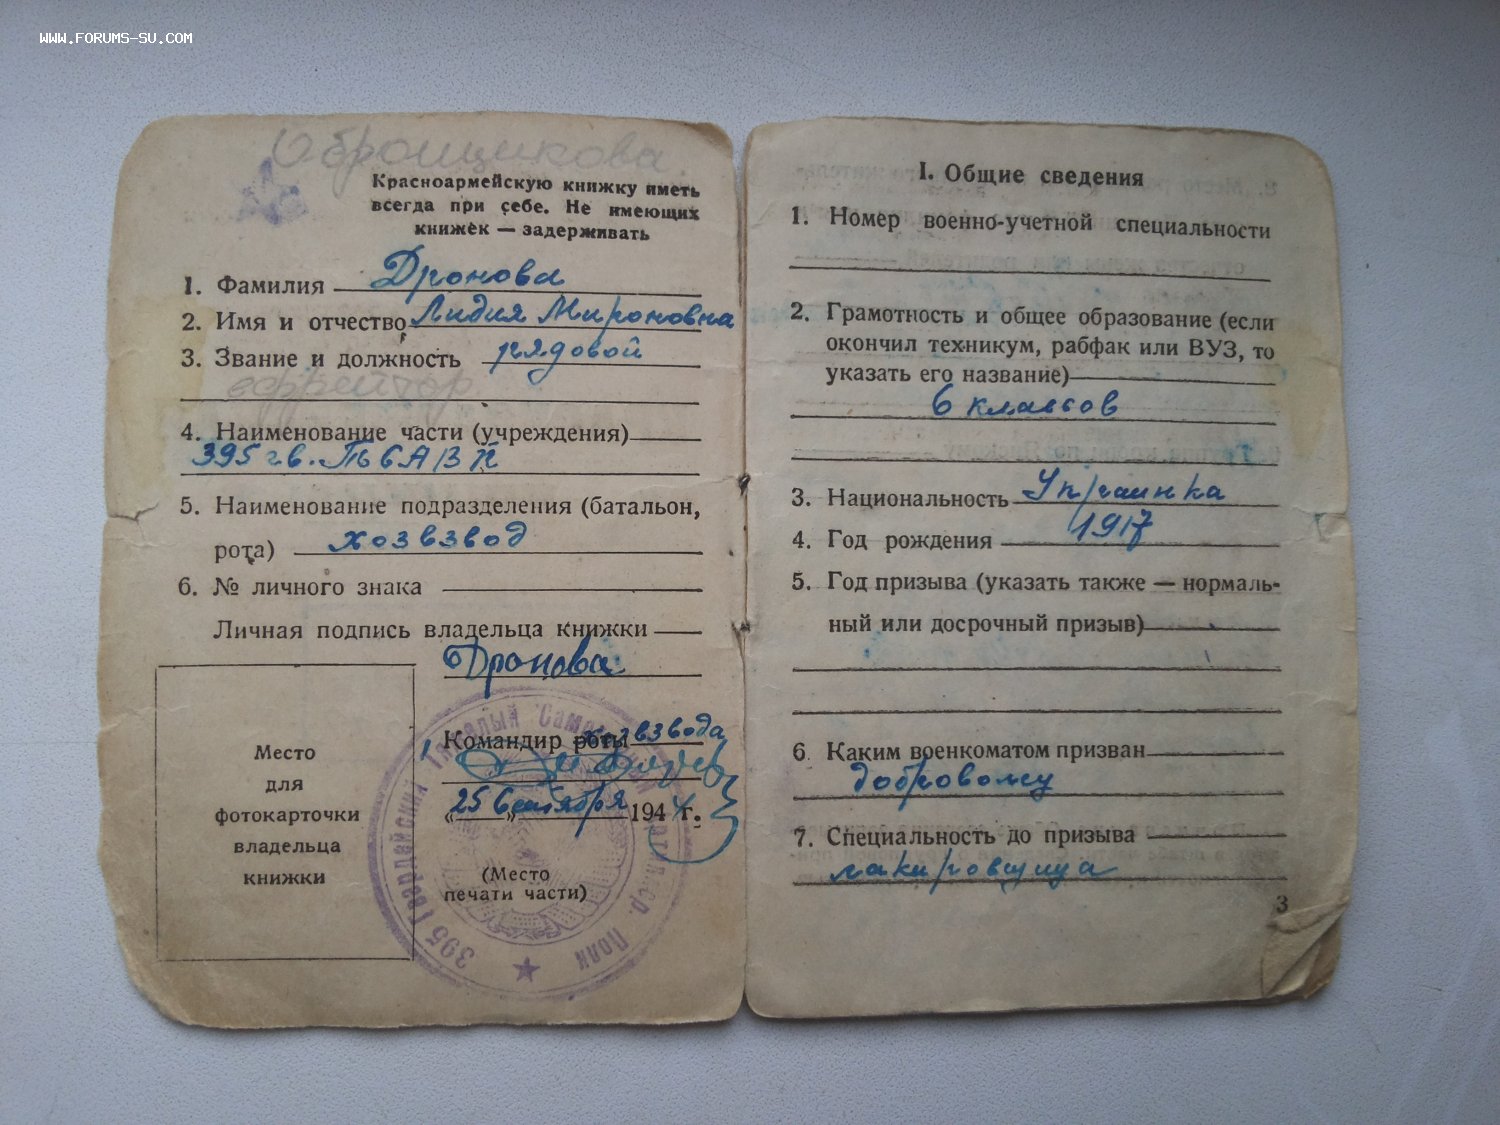 WWW.FORUMS-SU.COM
Оброщикова
Красноармейскую книжку иметь
всегда при себе. Не имеющих
книжек — задерживать
1. Фамилия Дронова
2. Имя и отчество Лидия Мироновна
3. Звание и должность рядовой
ефрейтор
4. Наименование части (учреждения)
395 гв.
5. Наименование подразделения (батальон,
рота) хозвзвод
6. № личного знака
Личная подпись владельца книжки
Дронова
Место
для
фотокарточки
владельца
книжки
Командир роты хозвзвода
«25» сентября 1944 г.
(Место
печати части)
395 Гвардейский Тяжелый Полк
I. Общие сведения
1. Номер военно-учетной специальности
2. Грамотность и общее образование (если
окончил техникум, рабфак или ВУЗ, то
указать его название)
6 классов
3. Национальность Украинка
4. Год рождения 1917
5. Год призыва (указать также — нормаль-
ный или досрочный призыв)
6. Каким военкоматом призван
7. Специальность до призыва
лакировщица
3